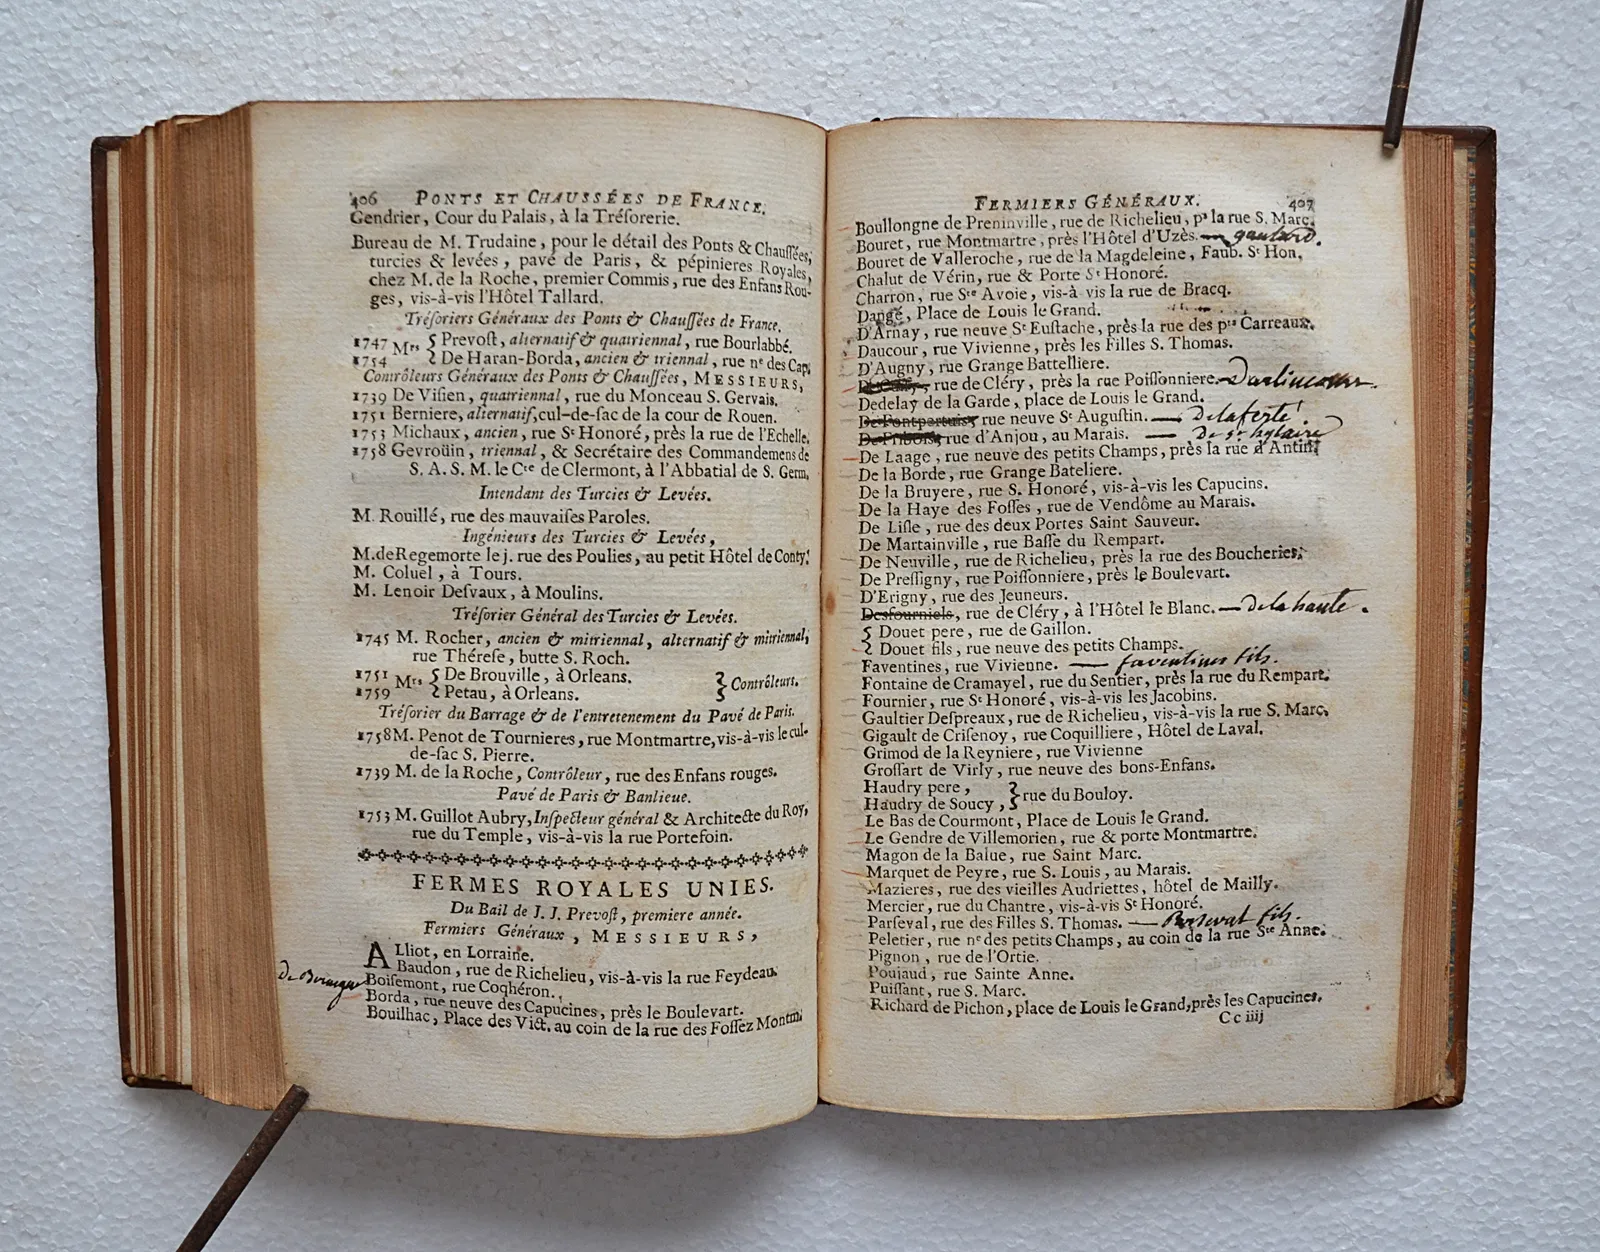 406 PONTS ET CHAUSSÉES DE FRANCE.
Gendrier, Cour du Palais, à la Tréſorerie.
Bureau de M. Trudaine, pour le détail des Ponts & Chauſſées,
turcies & levées, pavé de Paris, & pépinieres Royales,
chez M. de la Roche, premier Commis, rue des Enfans Rou-
ges, vis-à-vis l'Hôtel Tallard.
Tréſoriers Généraux des Ponts & Chauſſées de France.
1747 Mrs { Prevoſt, alternatif & quatriennal, rue Bourlabbé.
1754 { De Haran-Borda, ancien & triennal, rue ne des Cap.
Contrôleurs Généraux des Ponts & Chauſſées, MESSIEURS,
1739 De Viſien, quatriennal, rue du Monceau S. Gervais.
1751 Berniere, alternatif, cul-de-ſac de la cour de Rouen.
1753 Michaux, ancien, rue St Honoré, près la rue de l'Echelle.
1758 Gevroüin, triennal, & Secrétaire des Commandemens de
S. A. S. M. le Cte de Clermont, à l'Abbatial de S. Germ.
Intendant des Turcies & Levées.
M. Rouillé, rue des mauvaiſes Paroles.
Ingénieurs des Turcies & Levées,
M. de Regemorte le j. rue des Poulies, au petit Hôtel de Conty.
M. Coluel, à Tours.
M. Lenoir Deſvaux, à Moulins.
Tréſorier Général des Turcies & Levées.
1745 M. Rocher, ancien & mitriennal, alternatif & mitriennal,
rue Théreſe, butte S. Roch.
1751 Mrs { De Brouville, à Orleans. } Contrôleurs.
1759 { Petau, à Orleans.
Tréſorier du Barrage & de l'entretenement du Pavé de Paris.
1758 M. Penot de Tournieres, rue Montmartre, vis-à-vis le cul-
de-ſac S. Pierre.
1739 M. de la Roche, Contrôleur, rue des Enfans rouges.
Pavé de Paris & Banlieue.
1753 M. Guillot Aubry, Inſpecteur général & Architecte du Roy,
rue du Temple, vis-à-vis la rue Portefoin.
FERMES ROYALES UNIES.
Du Bail de J. J. Prevoſt, premiere année.
Fermiers Généraux, MESSIEURS,
ALliot, en Lorraine.
Baudon, rue de Richelieu, vis-à-vis la rue Feydeau.
Boiſemont, rue Coqhéron.
Borda, rue neuve des Capucines, près le Boulevart.
Bouilhac, Place des Vict. au coin de la rue des Foſſez Montm.
FERMIERS GÉNÉRAUX. 407
Boullongne de Preninville, rue de Richelieu, ps la rue S. Marc.
Bouret, rue Montmartre, près l'Hôtel d'Uzès. — gautard.
Bouret de Valleroche, rue de la Magdeleine, Faub. St Hon.
Chalut de Vérin, rue & Porte St Honoré.
Charron, rue Ste Avoie, vis-à vis la rue de Bracq.
Dangé, Place de Louis le Grand.
D'Arnay, rue neuve St Euſtache, près la rue des pts Carreaux.
Daucour, rue Vivienne, près les Filles S. Thomas.
D'Augny, rue Grange Battelliere.
rue de Cléry, près la rue Poiſſonniere.
Dedelay de la Garde, place de Louis le Grand.
De Pontpertuis, rue neuve St Auguſtin. — De laferté
De Fribois, rue d'Anjou, au Marais. — De St hylaire
De Laage, rue neuve des petits Champs, près la rue d'Antin.
De la Borde, rue Grange Bateliere.
De la Bruyere, rue S. Honoré, vis-à-vis les Capucins.
De la Haye des Foſſes, rue de Vendôme au Marais.
De Liſle, rue des deux Portes Saint Sauveur.
De Martainville, rue Baſſe du Rempart.
De Neuville, rue de Richelieu, près la rue des Boucheries.
De Preſſigny, rue Poiſſonniere, près le Boulevart.
D'Erigny, rue des Jeuneurs.
Desfourniels, rue de Cléry, à l'Hôtel le Blanc. — De la haute.
{ Douet pere, rue de Gaillon.
{ Douet fils, rue neuve des petits Champs.
Faventines, rue Vivienne. — faventines fils.
Fontaine de Cramayel, rue du Sentier, près la rue du Rempart.
Fournier, rue St Honoré, vis-à-vis les Jacobins.
Gaultier Deſpreaux, rue de Richelieu, vis-à-vis la rue S. Marc.
Gigault de Criſenoy, rue Coquilliere, Hôtel de Laval.
Grimod de la Reyniere, rue Vivienne
Groſſart de Virly, rue neuve des bons-Enfans.
Haudry pere, } rue du Bouloy.
Haudry de Soucy,
Le Bas de Courmont, Place de Louis le Grand.
Le Gendre de Villemorien, rue & porte Montmartre.
Magon de la Balue, rue Saint Marc.
Marquet de Peyre, rue S. Louis, au Marais.
Mazieres, rue des vieilles Audriettes, hôtel de Mailly.
Mercier, rue du Chantre, vis-à-vis St Honoré.
Parſeval, rue des Filles S. Thomas. — Parseval fils.
Peletier, rue ne des petits Champs, au coin de la rue Ste Anne.
Pignon, rue de l'Ortie.
Poujaud, rue Sainte Anne.
Puiſſant, rue S. Marc.
Richard de Pichon, place de Louis le Grand, près les Capucines.
Cc iiij